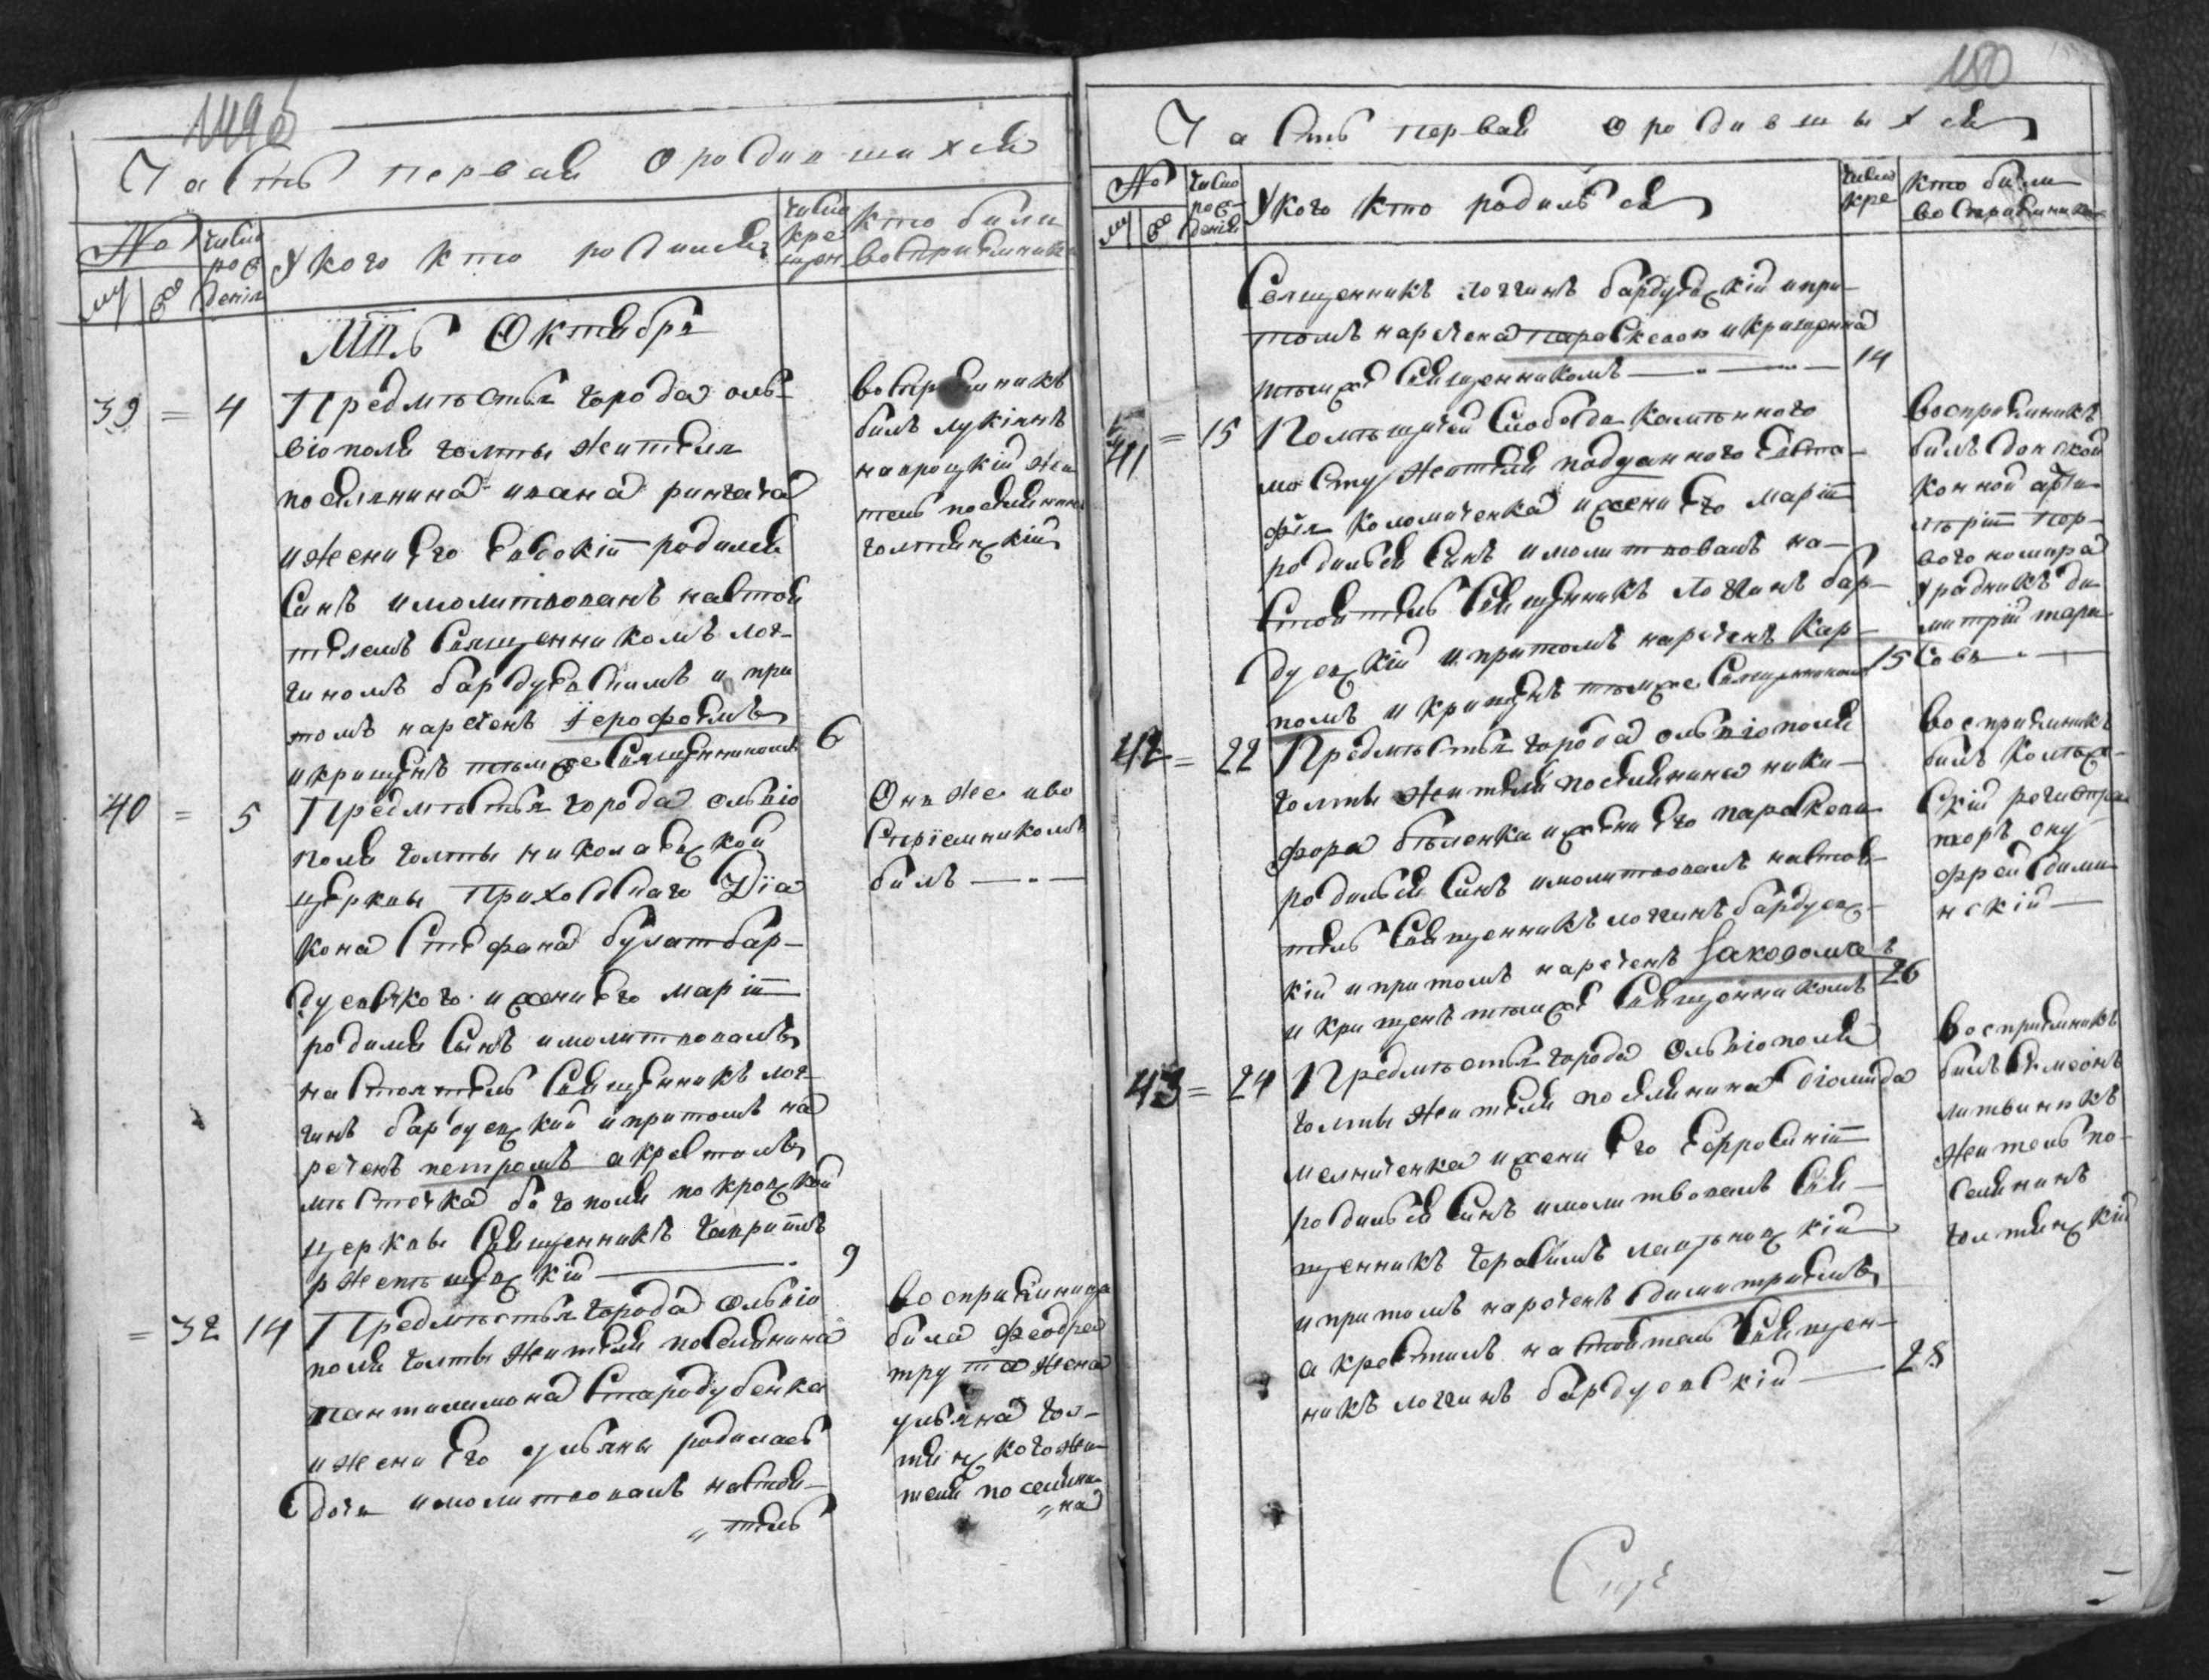 149об
Часть первая о родившихся
№ число рож У кого кто родился число кре щен кто были
му же денія восприемники
Мць Октябрь
39 = 4 Предмѣстья города оль-
віополя голты жителя
поселянина ивана рингача
и жени Его Евдокіи родился
Синъ и молитвованъ настоя
телемъ Священникомъ лог-
гиномъ бардуевскимъ и при
томъ нареченъ Іерофеемъ
и крищенъ тѣмже Священникомъ 6
восприемникъ
билъ лукіянъ
навроцкій жи
тель поселянинъ
голтянскій
40 = 5 Предмѣстья города ольвіо
поля голты николаевской
церкви Приходскаго Діа
кона Стефана булатбар-
дуевского и жени Его маріи
родился Сынъ и молитвовалъ
настоятель Священникъ лог-
гинъ бардуевскій и притомъ на
реченъ петромъ а крестилъ
мѣстечка богополя покровской
церкви Священникъ Гавріилъ
ржепѣшевскій 9
Онъ же и во
спріемникомъ
билъ
= 32 14 Предмѣстья города ольвіо
поля голты жителя поселянина
пантилимона Стародубенка
и жени Его ульяны родилась
дочь и молитвовалъ настоя-
„тель
восприемница
била Феодора
жена
ульяна гол-
тянского жи-
теля поселяни-
„на
180
Часть первая о родившихся
№ число рож- У кого кто родился число кре кто били
му же денія восприемники
Священникъ логгинъ бардуевскій и при-
томъ наречена параскевою и крищенна
тѣмже Священникомъ 14
41 = 15 Помѣщичей Слободы Камѣнного
мосту жителя подданного Евста-
фія Коломиченка и жени Его маріи
родился Синъ и молитвовалъ на-
стоятель Священникъ логгинъ бар-
дуевскій и притомъ нареченъ Кар-
помъ и крищенъ тѣмже Священникомъ 15
восприемникъ
билъ донской
конной арти-
лѣріи пер-
вого номира
Урадникъ ди-
митрій тара-
совъ
42 = 22 Предмѣстья города ольвіополя
голты жителя поселянина ники-
фора бѣленка и жени Его параскеви
родился Синъ и молитвовалъ настоя-
тель Священникъ логгинъ бардуев-
кій и притомъ нареченъ Іаковомъ
и крищенъ тѣмже Священникомъ 26
восприемникъ
билъ Колѣж-
скій регистра
торъ ону
фрей дими
нскій
43 = 24 Предмѣстья города Ольвіополя
голты жителя поселянина діомида
мелниченка и жени Его Ефросиніи
родился Синъ и молитвовалъ Свя-
щенникъ герасимъ
и притомъ нареченъ димитриемъ
а крестилъ настоятель Священ-
никъ логгинъ бардуевскій 28
восприемникъ
билъ Симеонъ
литвинъ
житель по-
селянинъ
голтянскій